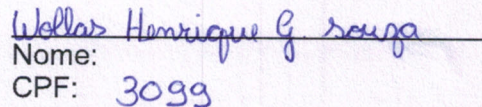 Wollas Henrique G souza
Nome:
CPF: 3099